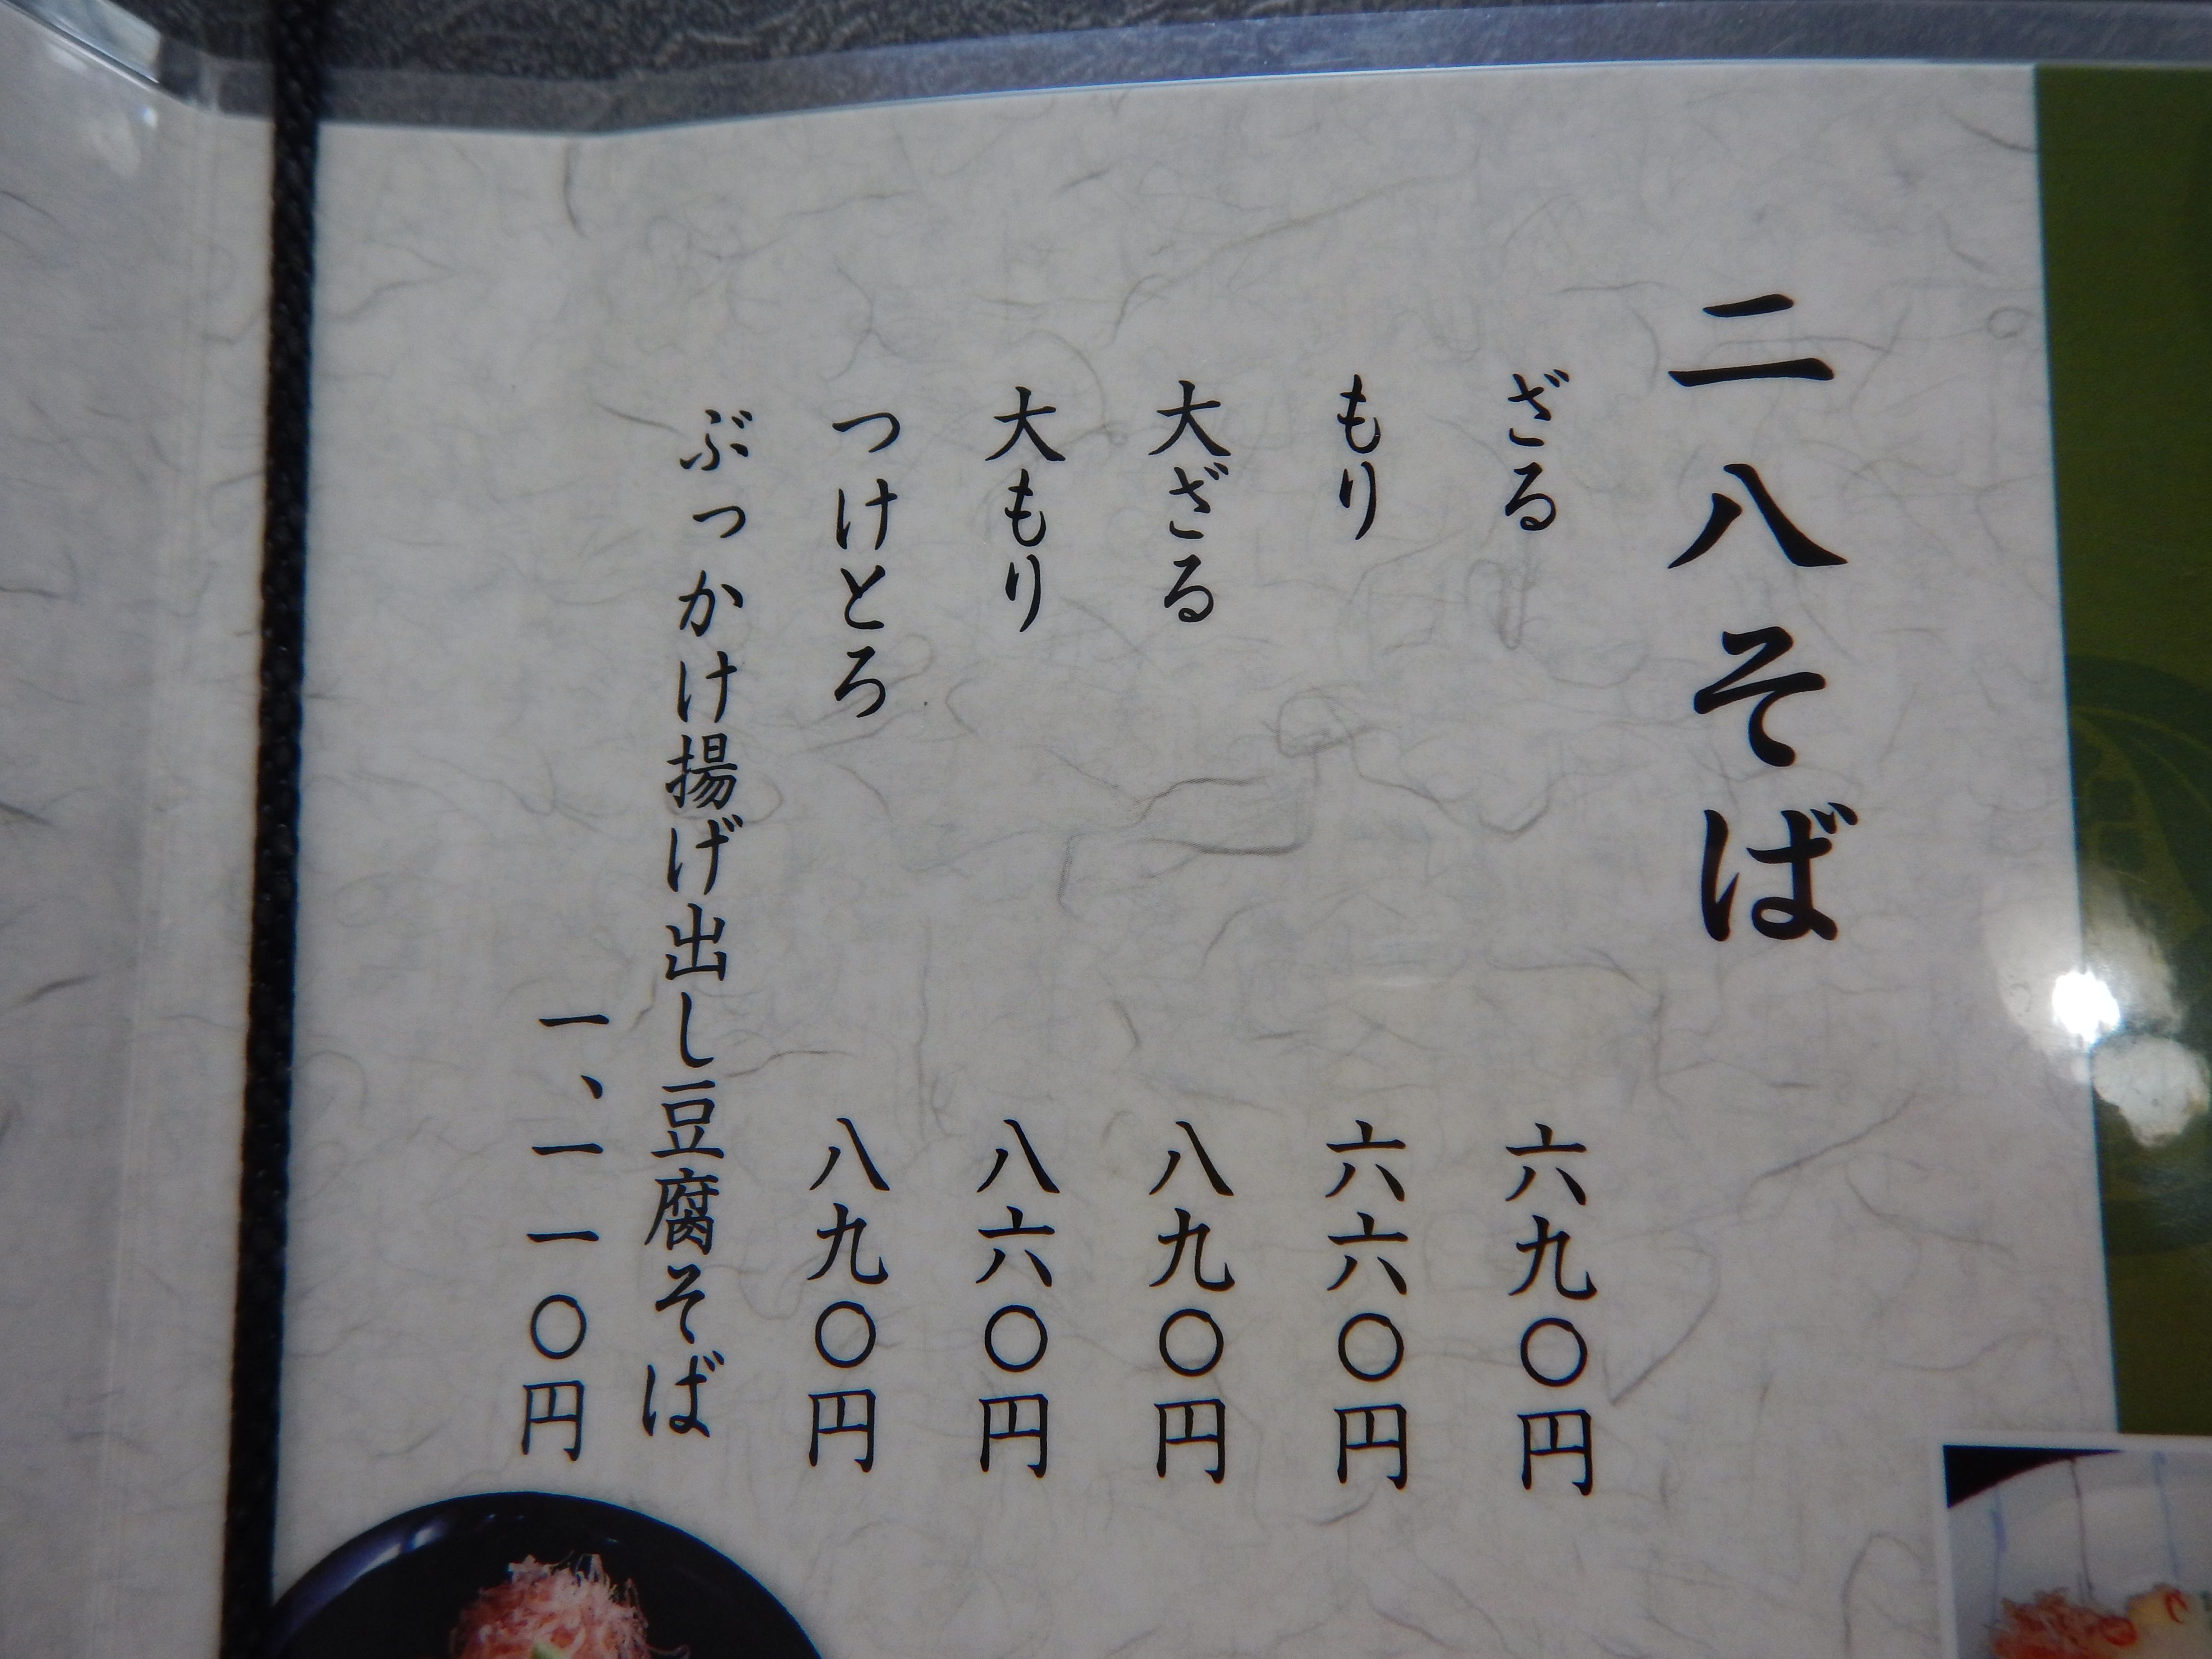 二八そば
ざる 六九〇円
もり 六六〇円
大ざる 八九〇円
大もり 八六〇円
つけとろ 八九〇円
ぶっかけ揚げ出し豆腐そば
一、一一〇円